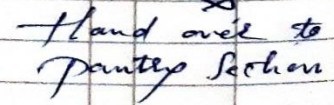 Hand over to
Pantry Section